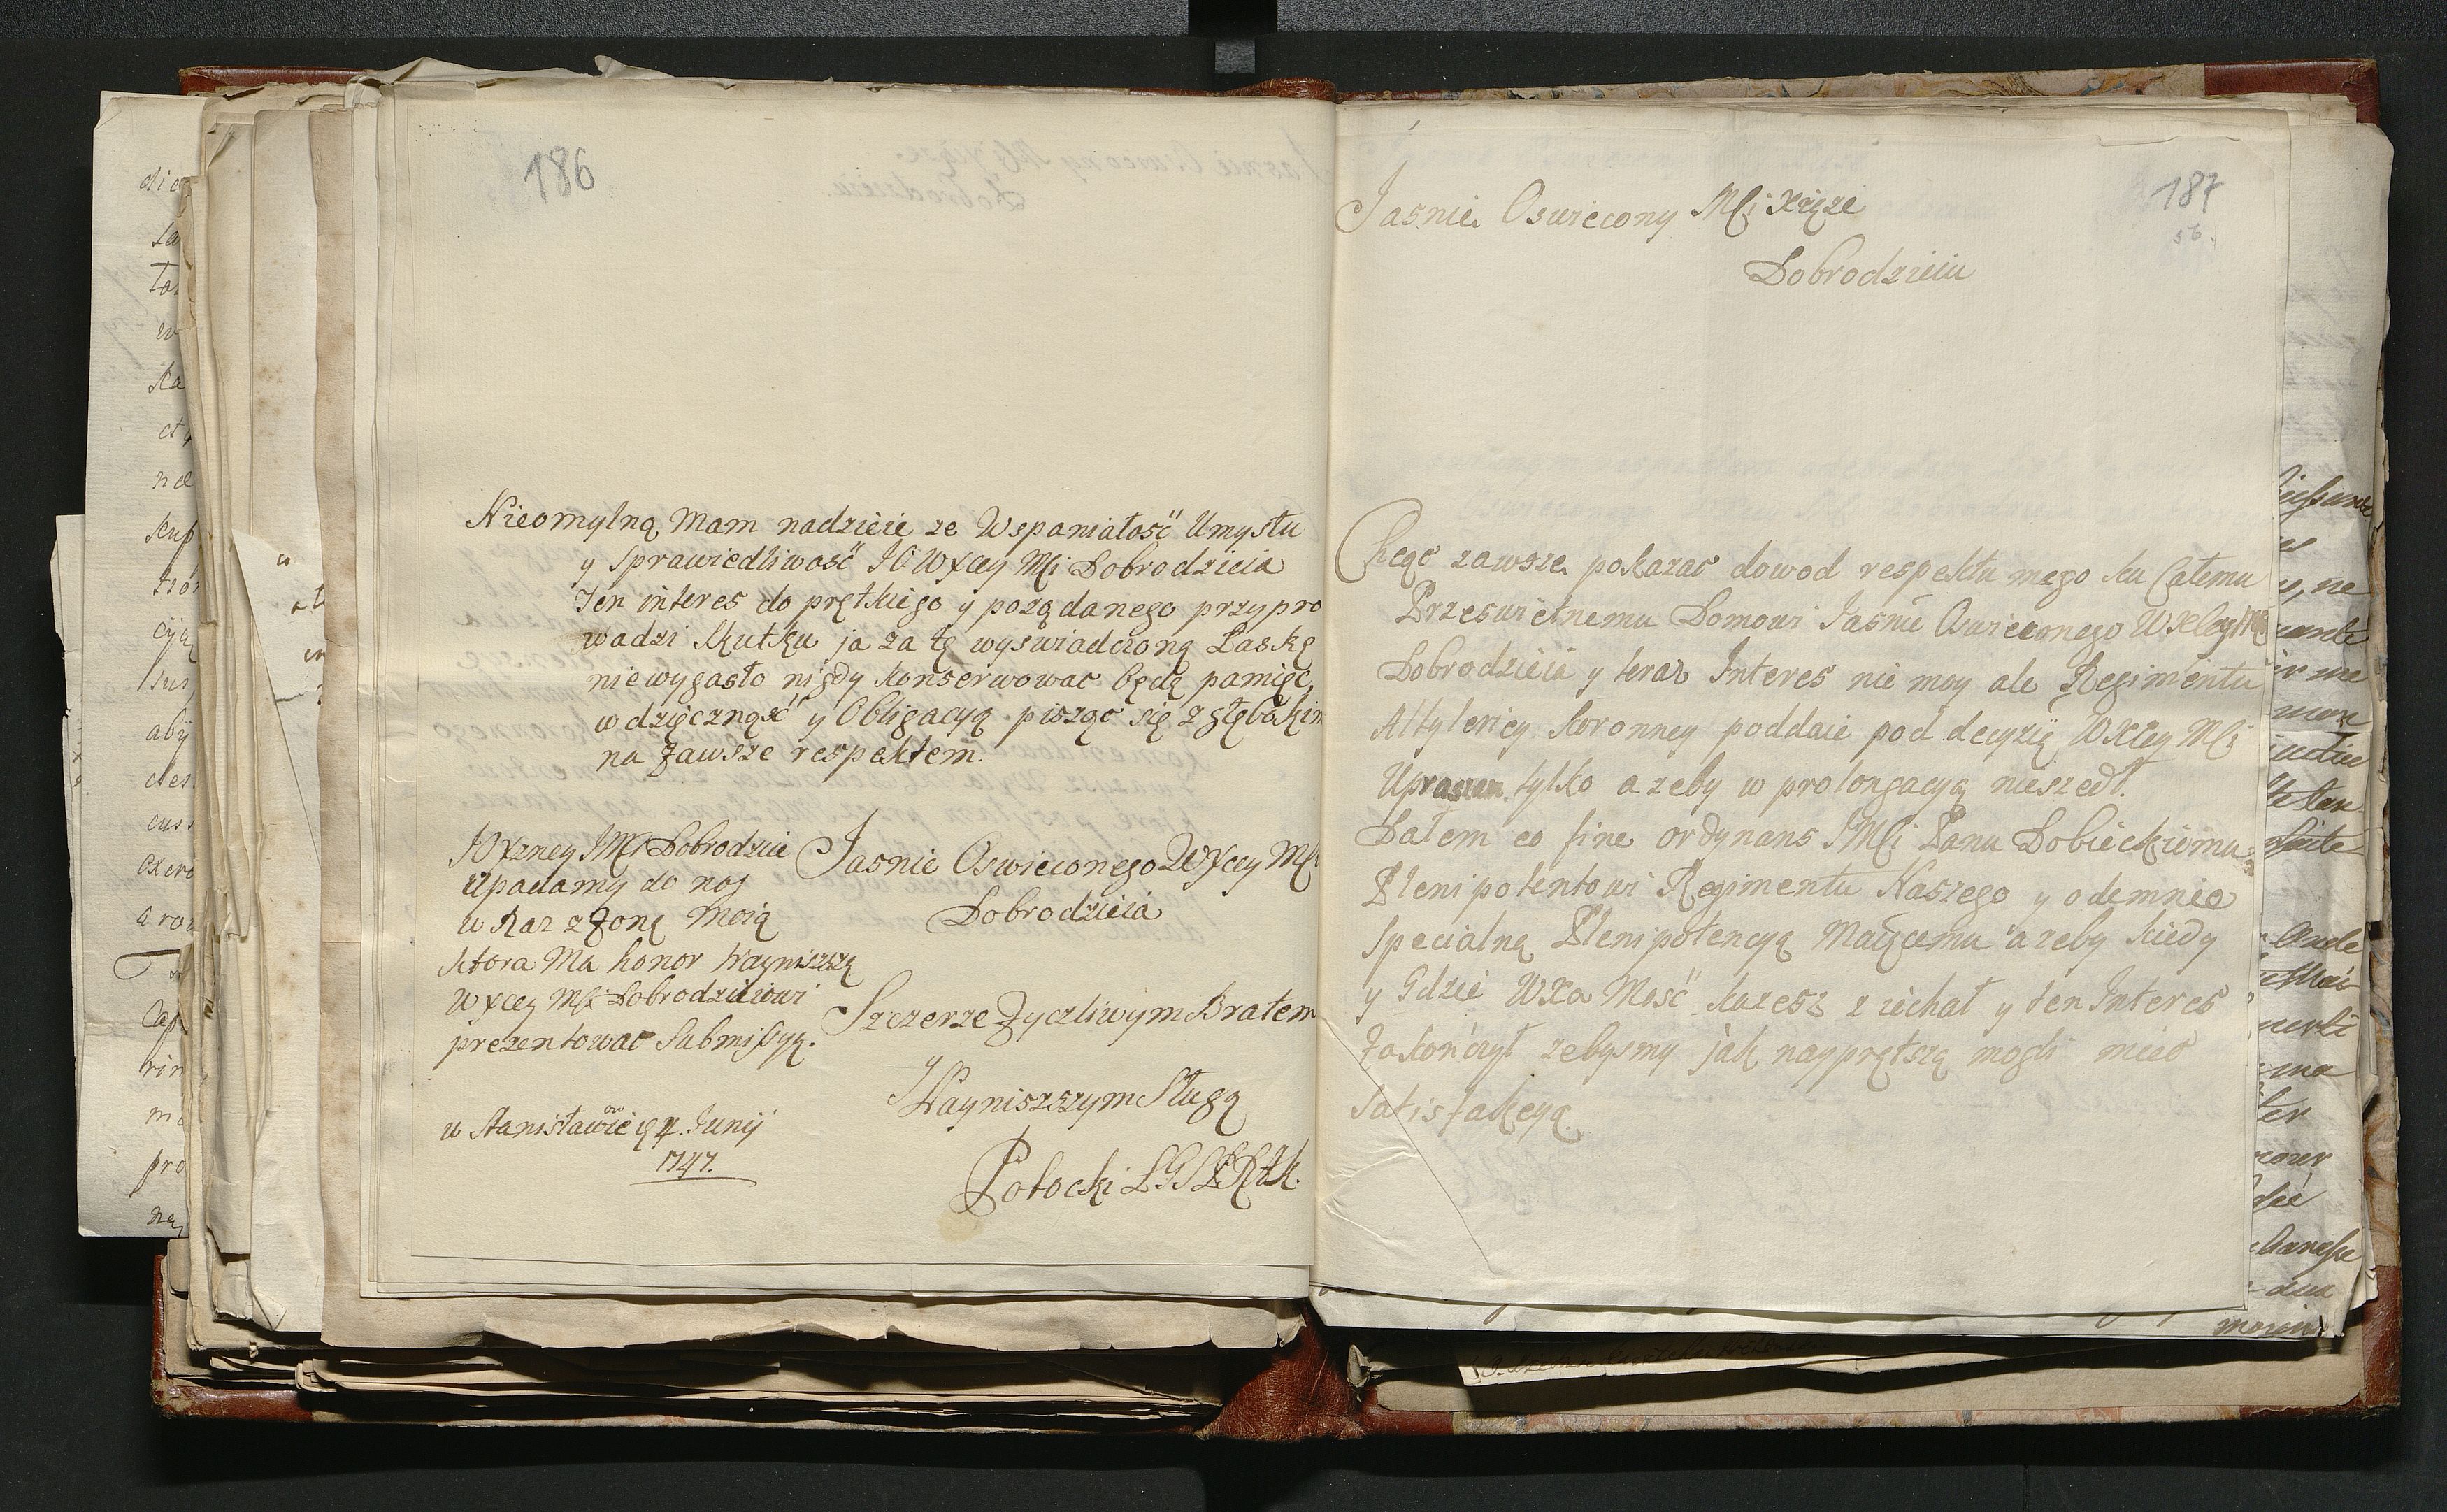 186
Nieomylną Mam nadzieie ze Wspaniałość Umysłu
y Sprawiedliwość JO WXcey Mści Dobrodzieia
Ten interes do prętkiego y pożądanego przypro
wadzi skutku ja za tę wyswiadczoną Łaskę
niewygasło nigdy konserwować będę pamięć,
wdzięczność y Obligacyą pisząc się z głębokim
na zawsze respektem.
JO Xzney JMści Dobrodzice
upadamy do nog
w raz z Zoną Moią
ktora Ma honor Nayniszszą
WXcey Mści Dobrodzieiowi
prezentować Submissyą.
Jasnie Oswieconego WXcey Mści
Dobrodzieia
Szczerze Zyczliwym Bratem
y Nayniszszym Sługą
w Stanisławowie 4. Junij
1747.
Potocki
187
56.
Jasnie Oswiecony Mści Xiąze
Dobrodzieiu
Chcąc zawsze pokazać dowod respektu mego ku Całemu
Przeswietnemu Domowi Jasnie Oswieconego WXcey Mści
Dobrodzieia y teraz Interes nie moy ale Regimentu
Artyleriey Koronney poddaie pod decyzią WXcey Mści
Upraszam tylko azeby w prolongacyą nieszedł.
Dałem eo fine ordynans JMści Panu Dobieckiemu
Plenipotentowi Regimentu Naszego y odemnie
Specialną Plenipotencyą Maiącemu azeby kiedy
y Gdzie WXa Mość kazesz ziechał y ten Interes
Zakończył zebysmy jak nayprętszą mogli miec
Satisfakcyą.